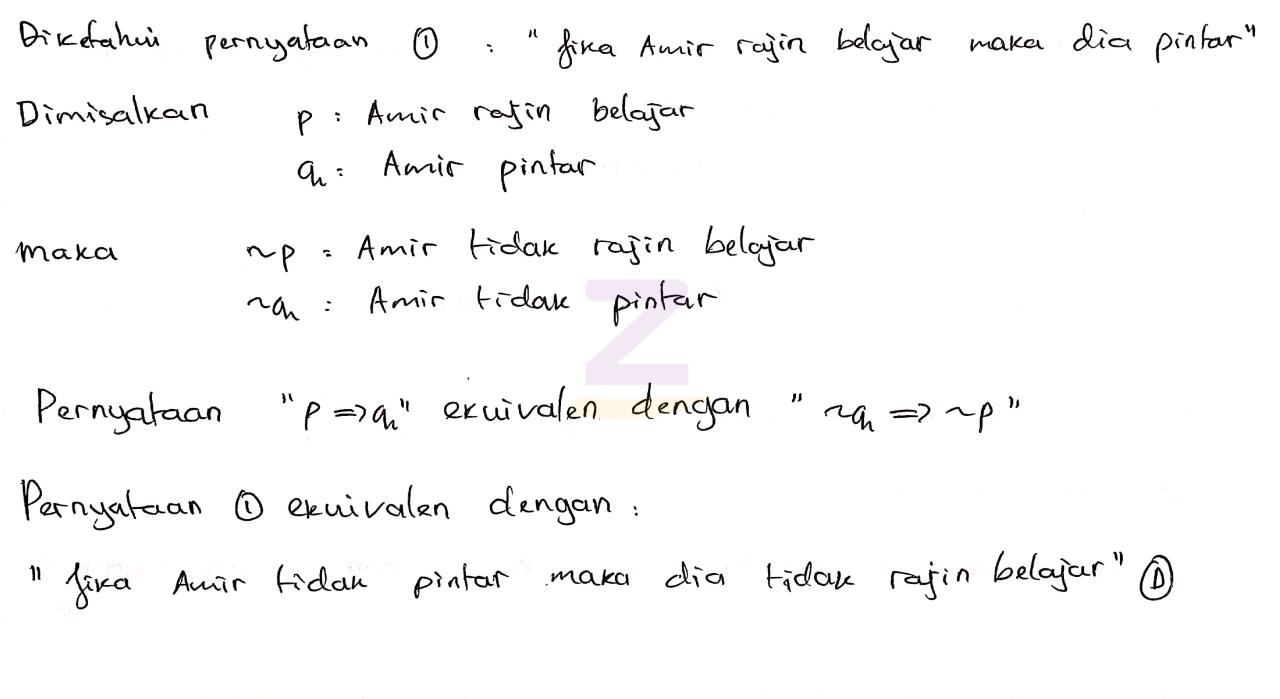 Diketahui pernyataan ① : "Jika Amir rajin belajar maka dia pintar"
Dimisalkan p : Amir rajin belajar
q : Amir pintar
maka ~p : Amir tidak rajin belajar
~q : Amir tidak pintar
Z
Pernyataan "p => q" ekuivalen dengan "~q => ~p"
Pernyataan ① ekuivalen dengan :
"Jika Amir tidak pintar maka dia tidak rajin belajar" Ⓓ